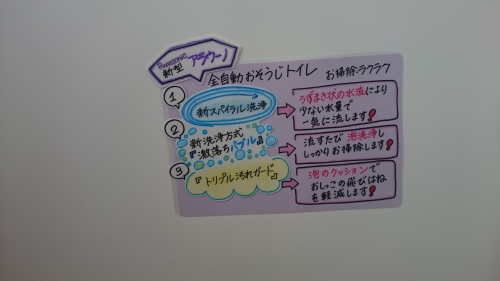 Panasonic
新型 アラウーノ
全自動おそうじトイレ お掃除ラクラク
1
新スパイラル洗浄
うずまき状の水流により
少ない水量で
一気に流します!
2
新洗浄方式
『激落ちバブル』
流すたび 泡洗浄し
しっかりお掃除します!
3
『トリプル汚れガード』
泡のクッションで
おしっこの飛びはね
を軽減します!